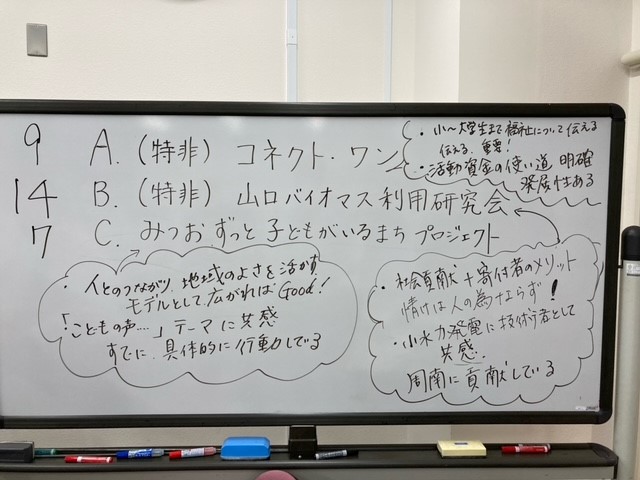 9 A. (特非) コネクト・ワン
・小〜大学生まで福祉について伝える
伝える、重要!
・活動資金の使い道 明確
発展性ある
14 B. (特非) 山口バイオマス利用研究会
7 C. みつお ずっと 子どもがいるまち プロジェクト
・人とのつながり、地域のよさを活かす
モデルとして広がれば Good!
「こどもの声…」テーマに共感
すでに、具体的に行動してる
・社会貢献+寄付者のメリット
情けは人の為ならず!
・小水力発電に技術者として
共感.
周南に貢献している